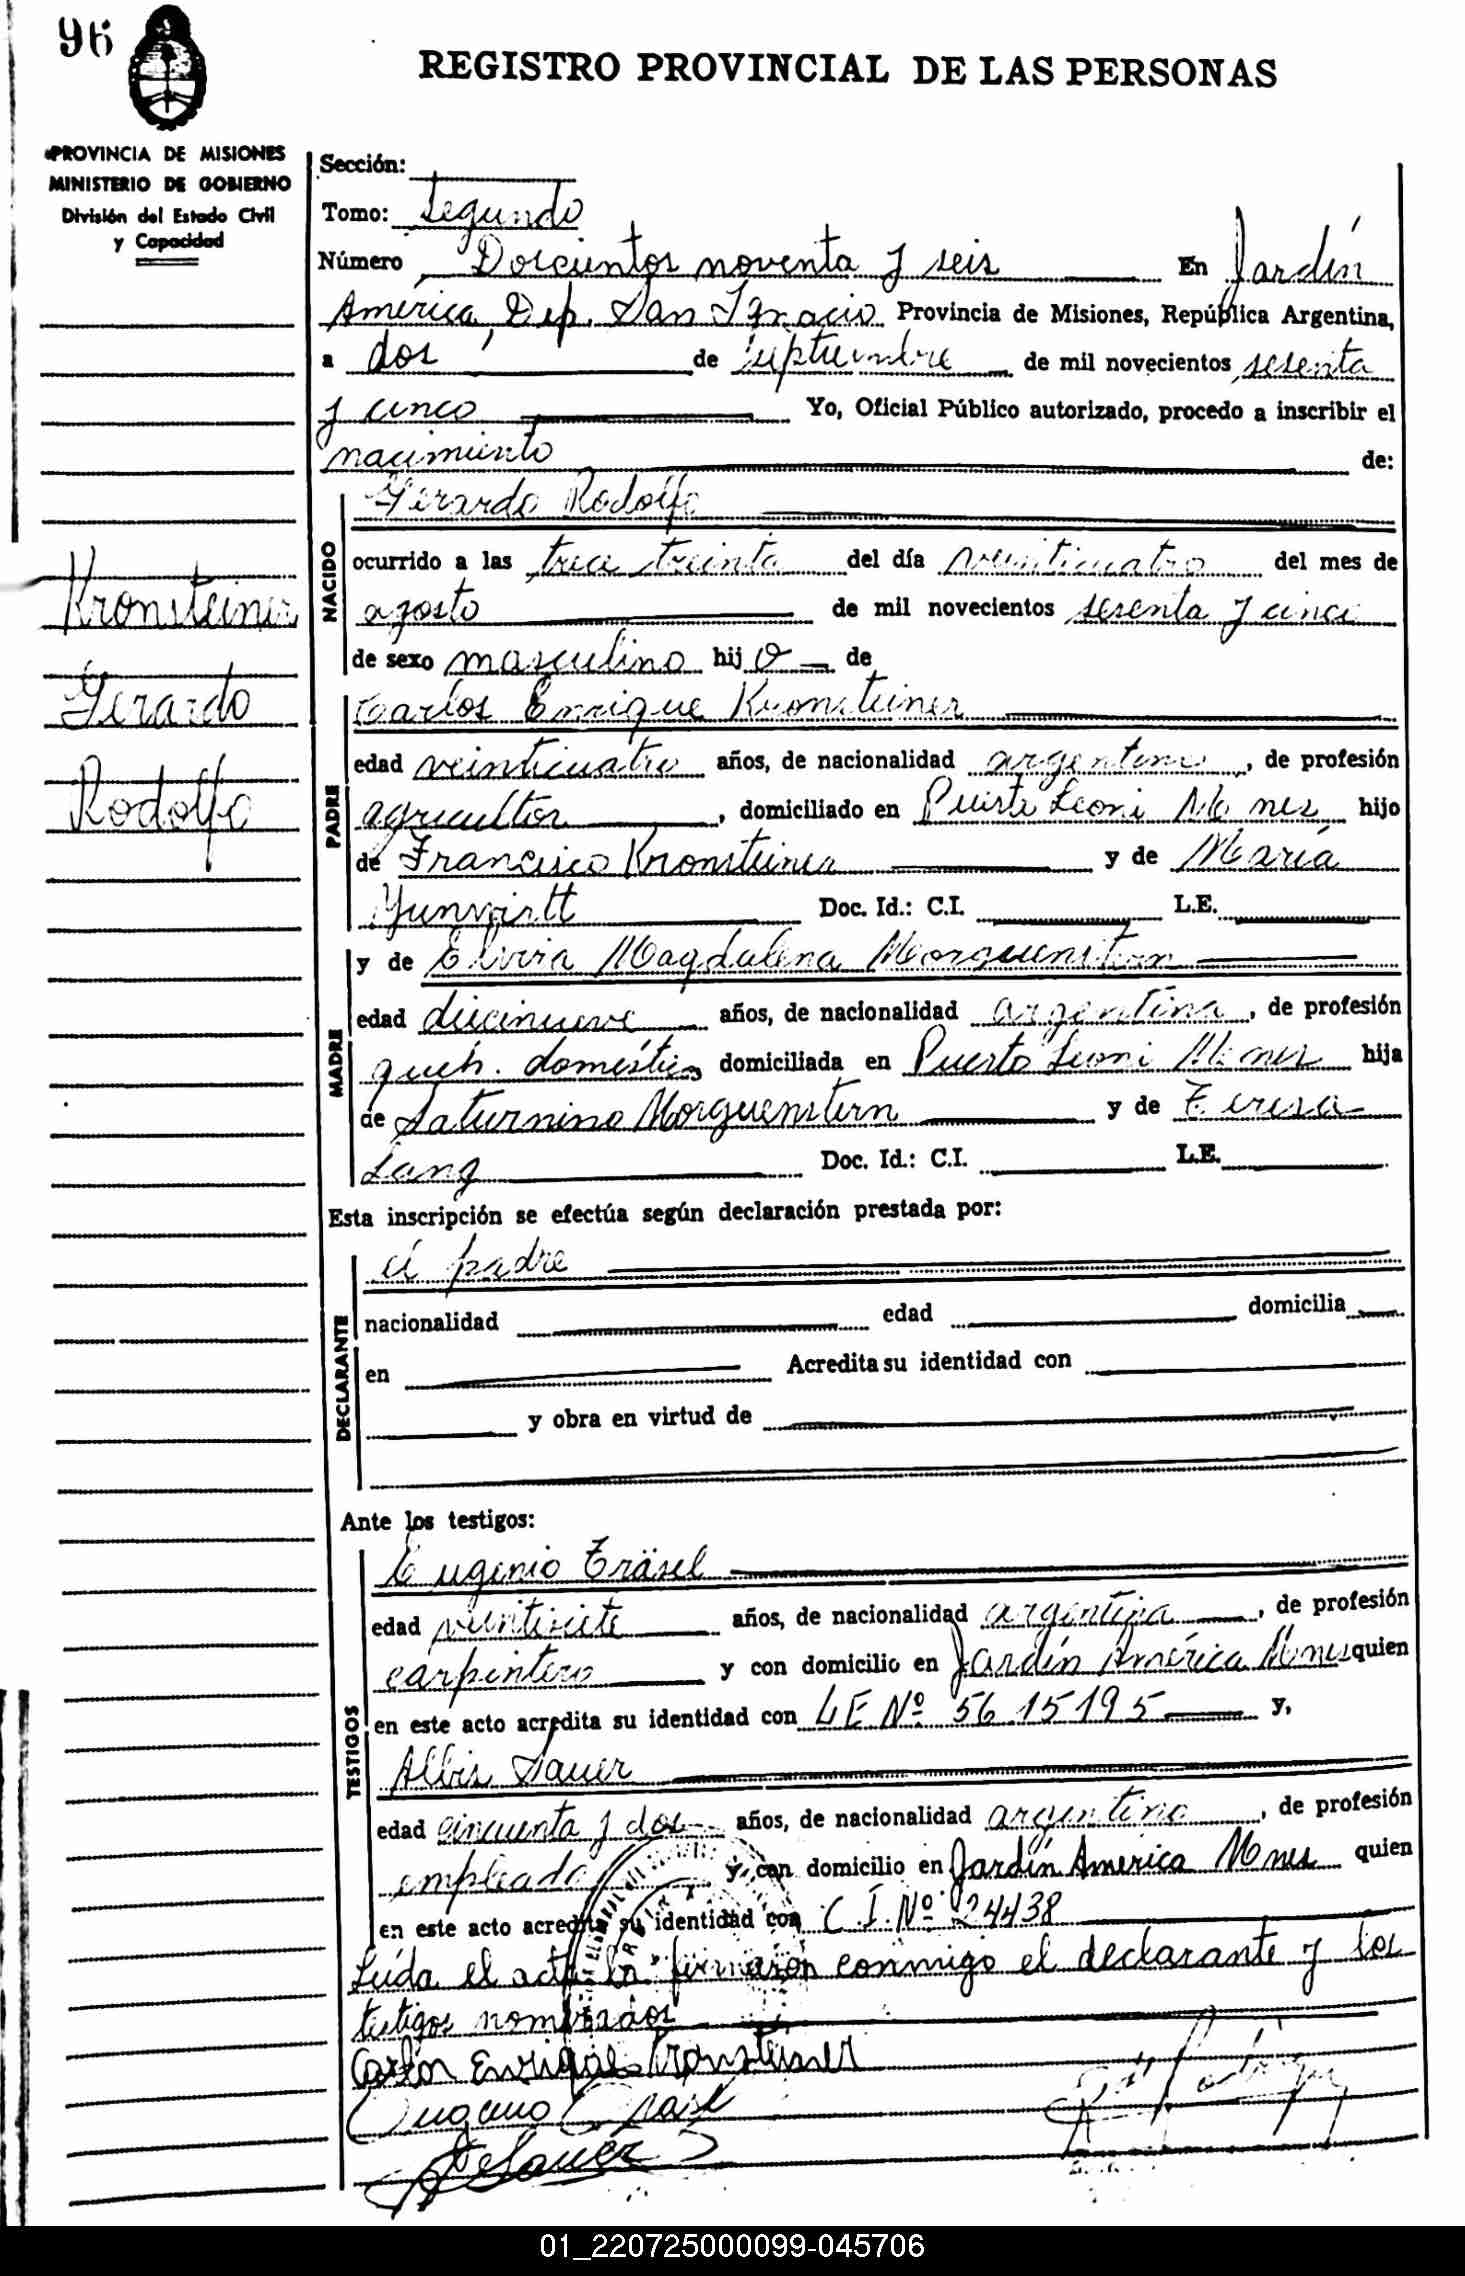 96
REGISTRO PROVINCIAL DE LAS PERSONAS
PROVINCIA DE MISIONES
MINISTERIO DE GOBIERNO
División del Estado Civil
y Capacidad
Sección:
Tomo: Segundo
Número Doscientos noventa y seis En Jardín
América, Dep. San Ignacio Provincia de Misiones, República Argentina,
a dos de septiembre de mil novecientos sesenta
y cinco Yo, Oficial Público autorizado, procedo a inscribir el
nacimiento de:
NACIDO
Gerardo Rodolfo
ocurrido a las trece treinta del día veinticuatro del mes de
agosto de mil novecientos sesenta y cinco
de sexo masculino hij o de
Kronsteiner
Gerardo
Rodolfo
PADRE
Carlos Enrique Kronsteiner
edad veinticuatro años, de nacionalidad argentina, de profesión
agricultor, domiciliado en Puerto Leoni Mnes hijo
de Francisco Kronsteiner y de María
Yunwirtt Doc. Id.: C.I. L.E.
MADRE
y de Elvira Magdalena Morguenstern
edad diecinueve años, de nacionalidad argentina, de profesión
queh. domésticos domiciliada en Puerto Leoni Mnes hija
de Saturnino Morguenstern y de Teresa
Lang Doc. Id.: C.I. L.E.
Esta inscripción se efectúa según declaración prestada por:
DECLARANTE
el padre
nacionalidad edad domicilia
en Acredita su identidad con
y obra en virtud de
Ante los testigos:
TESTIGOS
Eugenio Träsel
edad veintisiete años, de nacionalidad argentina, de profesión
carpintero y con domicilio en Jardín América Mnes quien
en este acto acredita su identidad con LE Nº 5615195 y,
Albis Sauer
edad cincuenta y dos años, de nacionalidad argentino, de profesión
empleado y con domicilio en Jardín América Mnes quien
en este acto acredita su identidad con C.I. Nº 24438
Leída el acta la firmaron conmigo el declarante y los
testigos nombrados
Carlos Enrique Kronsteiner
Eugenio Trasel
Sauer
01_220725000099-045706